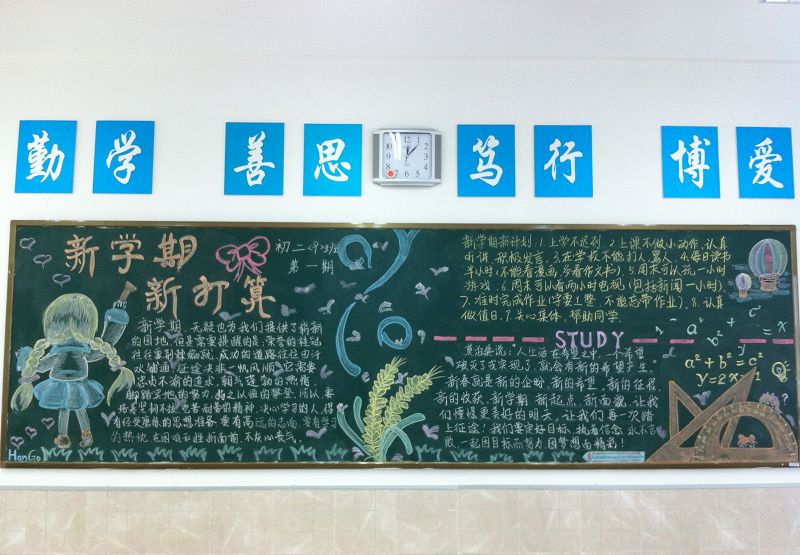 勤 学 善 思 笃 行 博 爱
新学期
新打算
初二(9)班
第一期
新学期,无疑也为我们提供了崭新
的园地,但是需要提醒的是:荣誉的桂冠
往往要荆棘编就,成功的道路往往由汗
水铺通,征途决非一帆风顺,它需要
坚贞不渝的追求,朝气蓬勃的热情,
脚踏实地的努力,持之以恒的攀登。所以要
的热忱,在困难和挫折面前,不灰心丧气。
HanGo
新学期新计划:1.上学不迟到 2.上课不做小动作,认真
听讲,积极发言.3.在学校不能打人、骂人.4.每日读书
半小时(不能看漫画,多看作文书).5.周末可以玩一小时
游戏.6.周末可以看两小时电视(包括新闻一小时).
7.准时完成作业(字要工整 不能忘带作业).8.认真
做值日.9.关心集体,帮助同学.
STUDY
莫泊桑说:"人生活在希望之中,一个希望
破灭了或实现了,就会有新的希望产生。"
新春就是新的企盼,新的希望,新的征程
新的收获。新学期,新起点,新面貌,让我
们憧憬更美好的明天,让我们再一次踏
上征途!我们要坚定目标,执着信念,永不言
败,一起因目标而努力,因梦想而精彩!
a²+b²=c²
y=2x-1